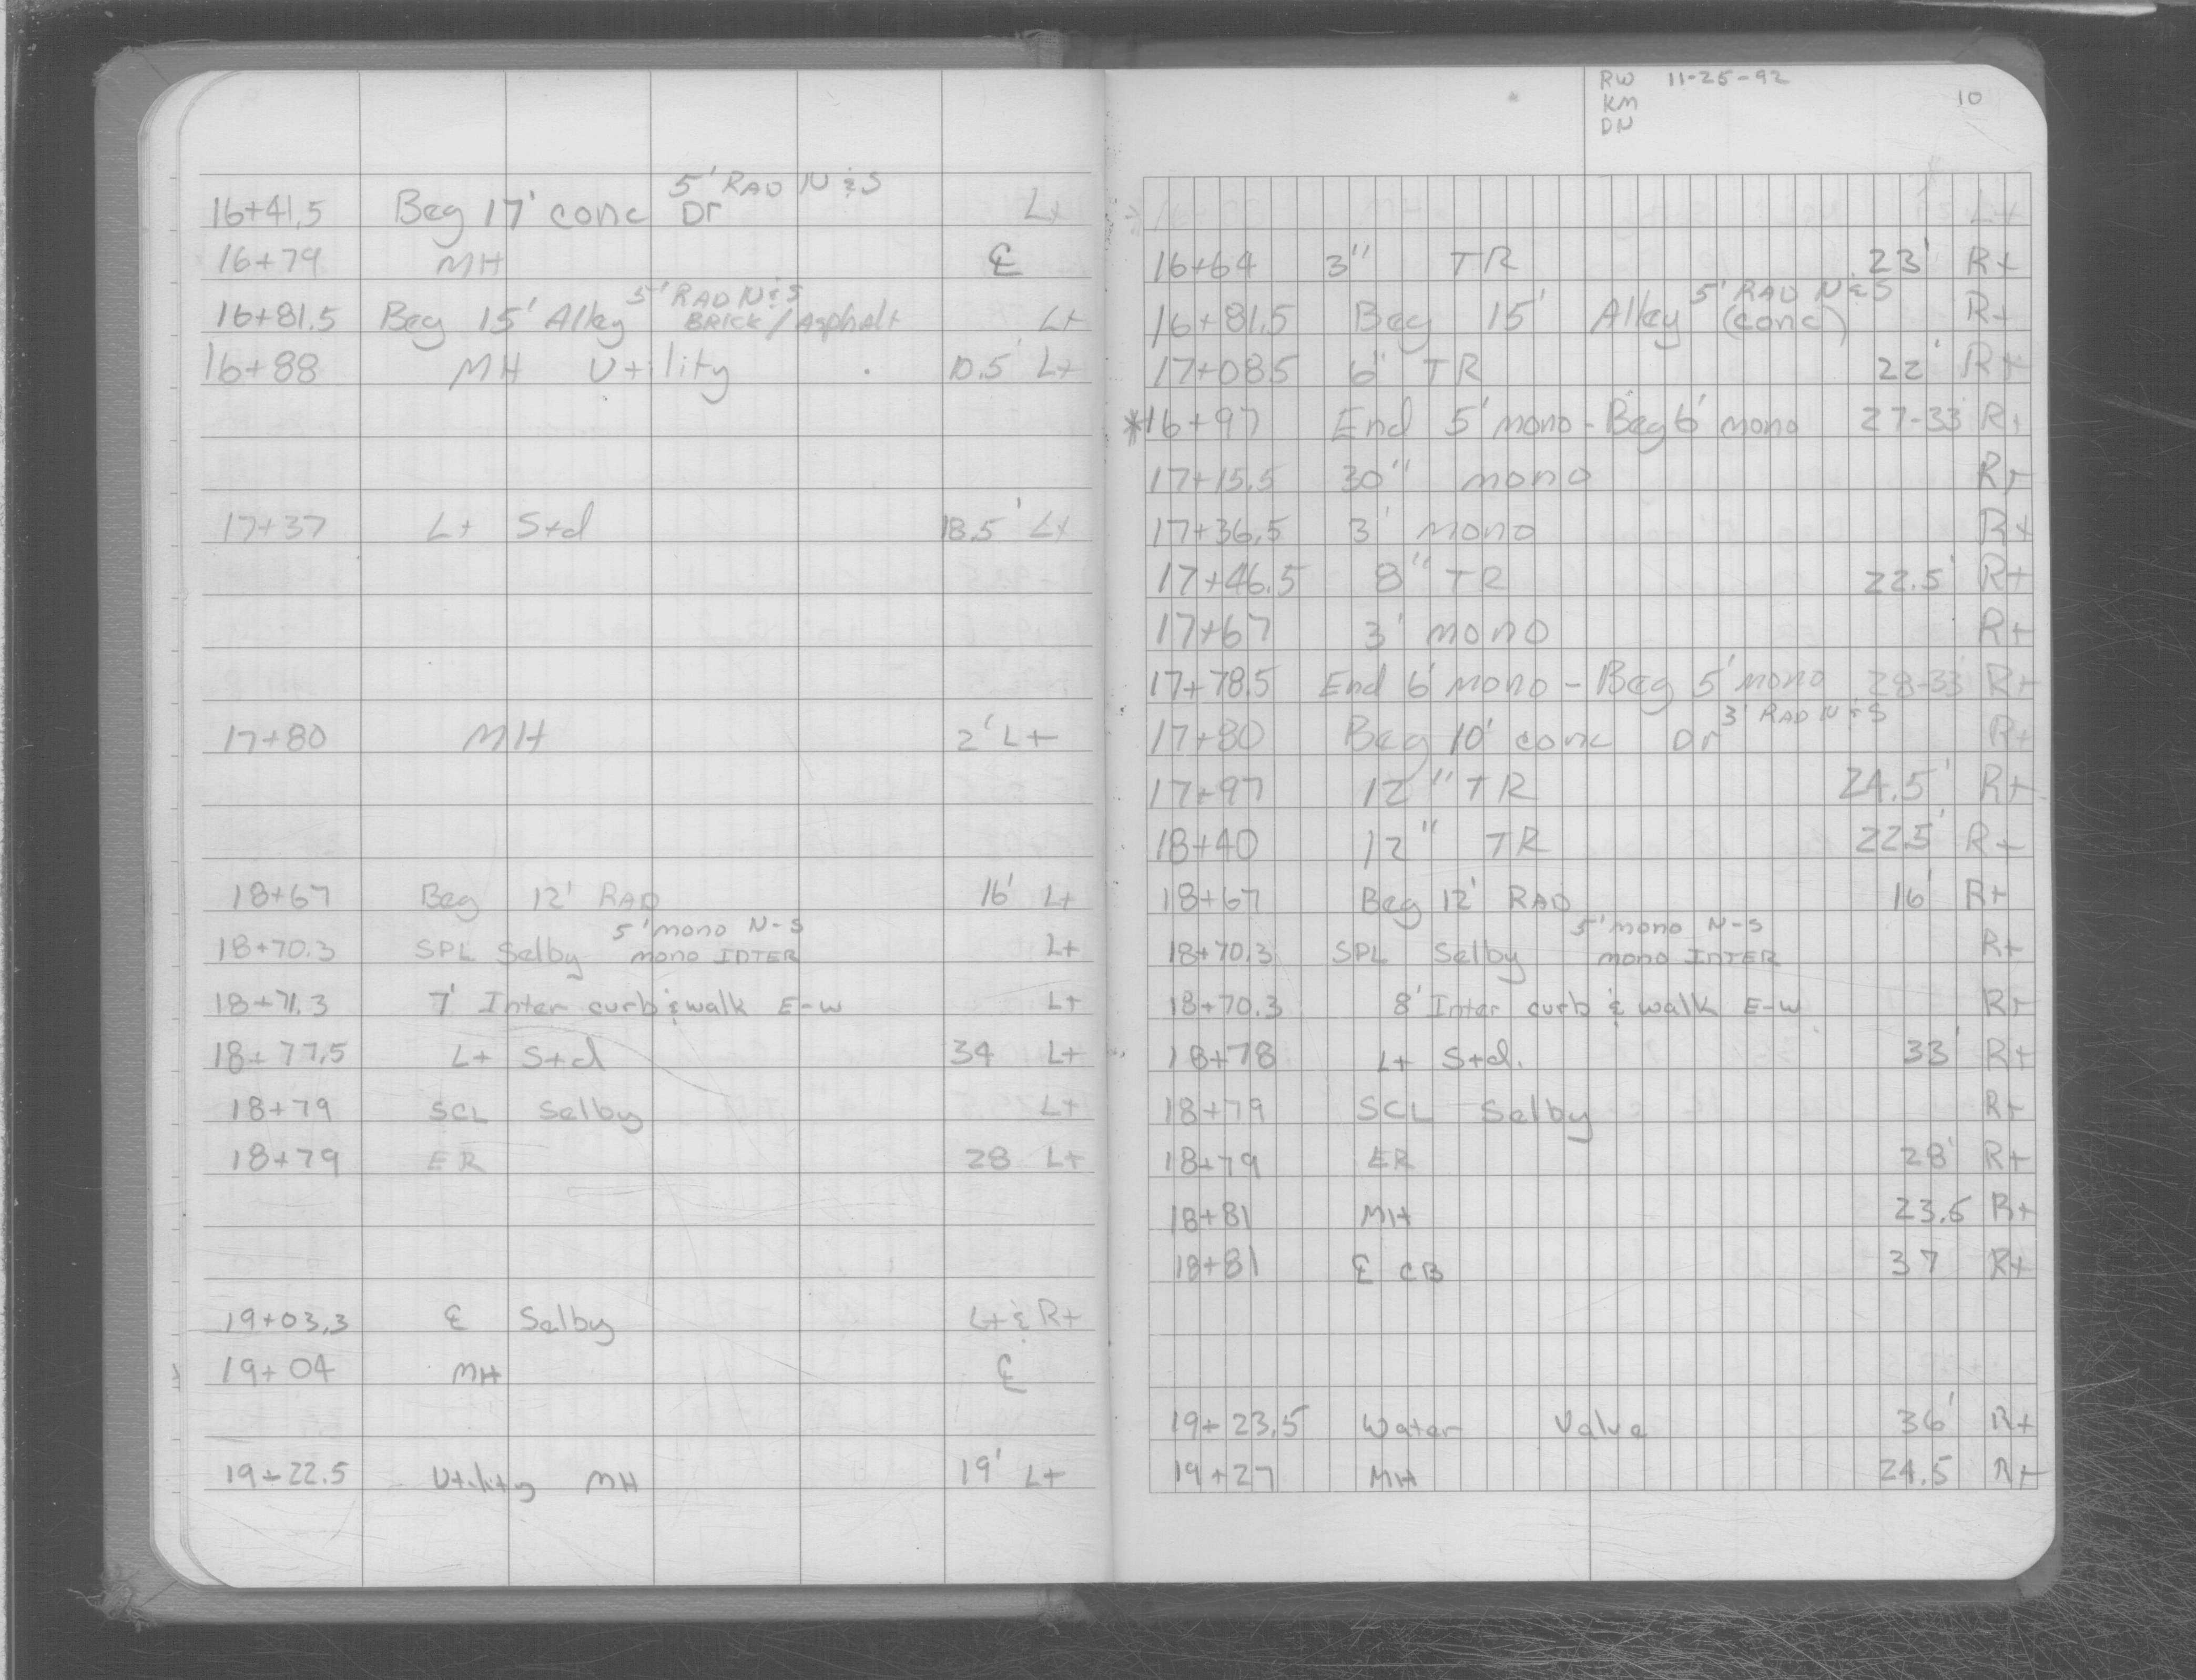 16+41.5 Beg 17' conc Dr 5' RAD N & S Lt
16+79 MH ℄
16+81.5 Beg 15' Alley 5' RAD N & S BRICK/Asphalt Lt
16+88 MH Utility 10.5' Lt
17+37 Lt Std 18.5' Lt
17+80 MH 2' Lt
18+67 Beg 12' RAD 16' Lt
18+70.3 SPL Selby 5' mono N-S mono INTER Lt
18+71.3 7' Inter curb & walk E-W Lt
18+77.5 Lt Std 34 Lt
18+79 SCL Selby Lt
18+79 ER 28 Lt
19+03.3 ℄ Selby Lt & Rt
19+04 MH ℄
19+22.5 Utility MH 19' Lt
RW 11-25-92
KM
DN
10
16+64 3" TR 23' Rt
16+81.5 Beg 15' Alley 5' RAD N & S (conc) Rt
17+08.5 6" TR 22' Rt
*16+97 End 5' mono - Beg 6' mono 27-33 Rt
17+15.5 30" mono Rt
17+36.5 3' mono Rt
17+46.5 8" TR 22.5' Rt
17+67 3' mono Rt
17+78.5 End 6' mono - Beg 5' mono 28-33' Rt
17+80 Beg 10' conc Dr 3' RAD N & S Rt
17+97 12" TR 24.5' Rt
18+40 12" TR 22.5' Rt
18+67 Beg 12' RAD 16' Rt
18+70.3 SPL Selby 5' mono N-S mono INTER Rt
18+70.3 8' Inter curb & walk E-W Rt
18+78 Lt Std. 33' Rt
18+79 SCL Selby Rt
18+79 ER 28' Rt
18+81 MH 23.5 Rt
18+81 ℄ CB 37 Rt
19+23.5 Water Valve 36' Rt
19+27 MH 24.5 Rt